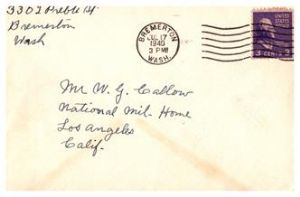 3302 Preble St.
Bremerton
Wash
BREMERTON
JUL 17
1940
3 PM
WASH.
UNITED STATES
3 CENTS 3
Mr W. G. Callow
National Mil. Home
Los Angeles
Calif.